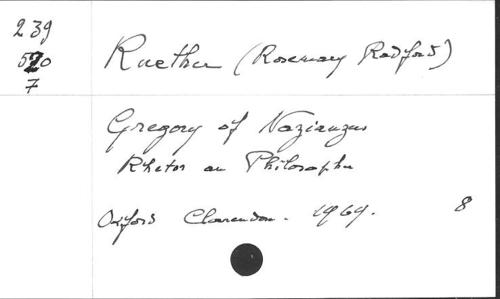 239
520
7
Ruether (Rosemary Radford)
Gregory of Nazianzus
Rhetor an Philosopher
Oxford Clarendon. 1969. 8